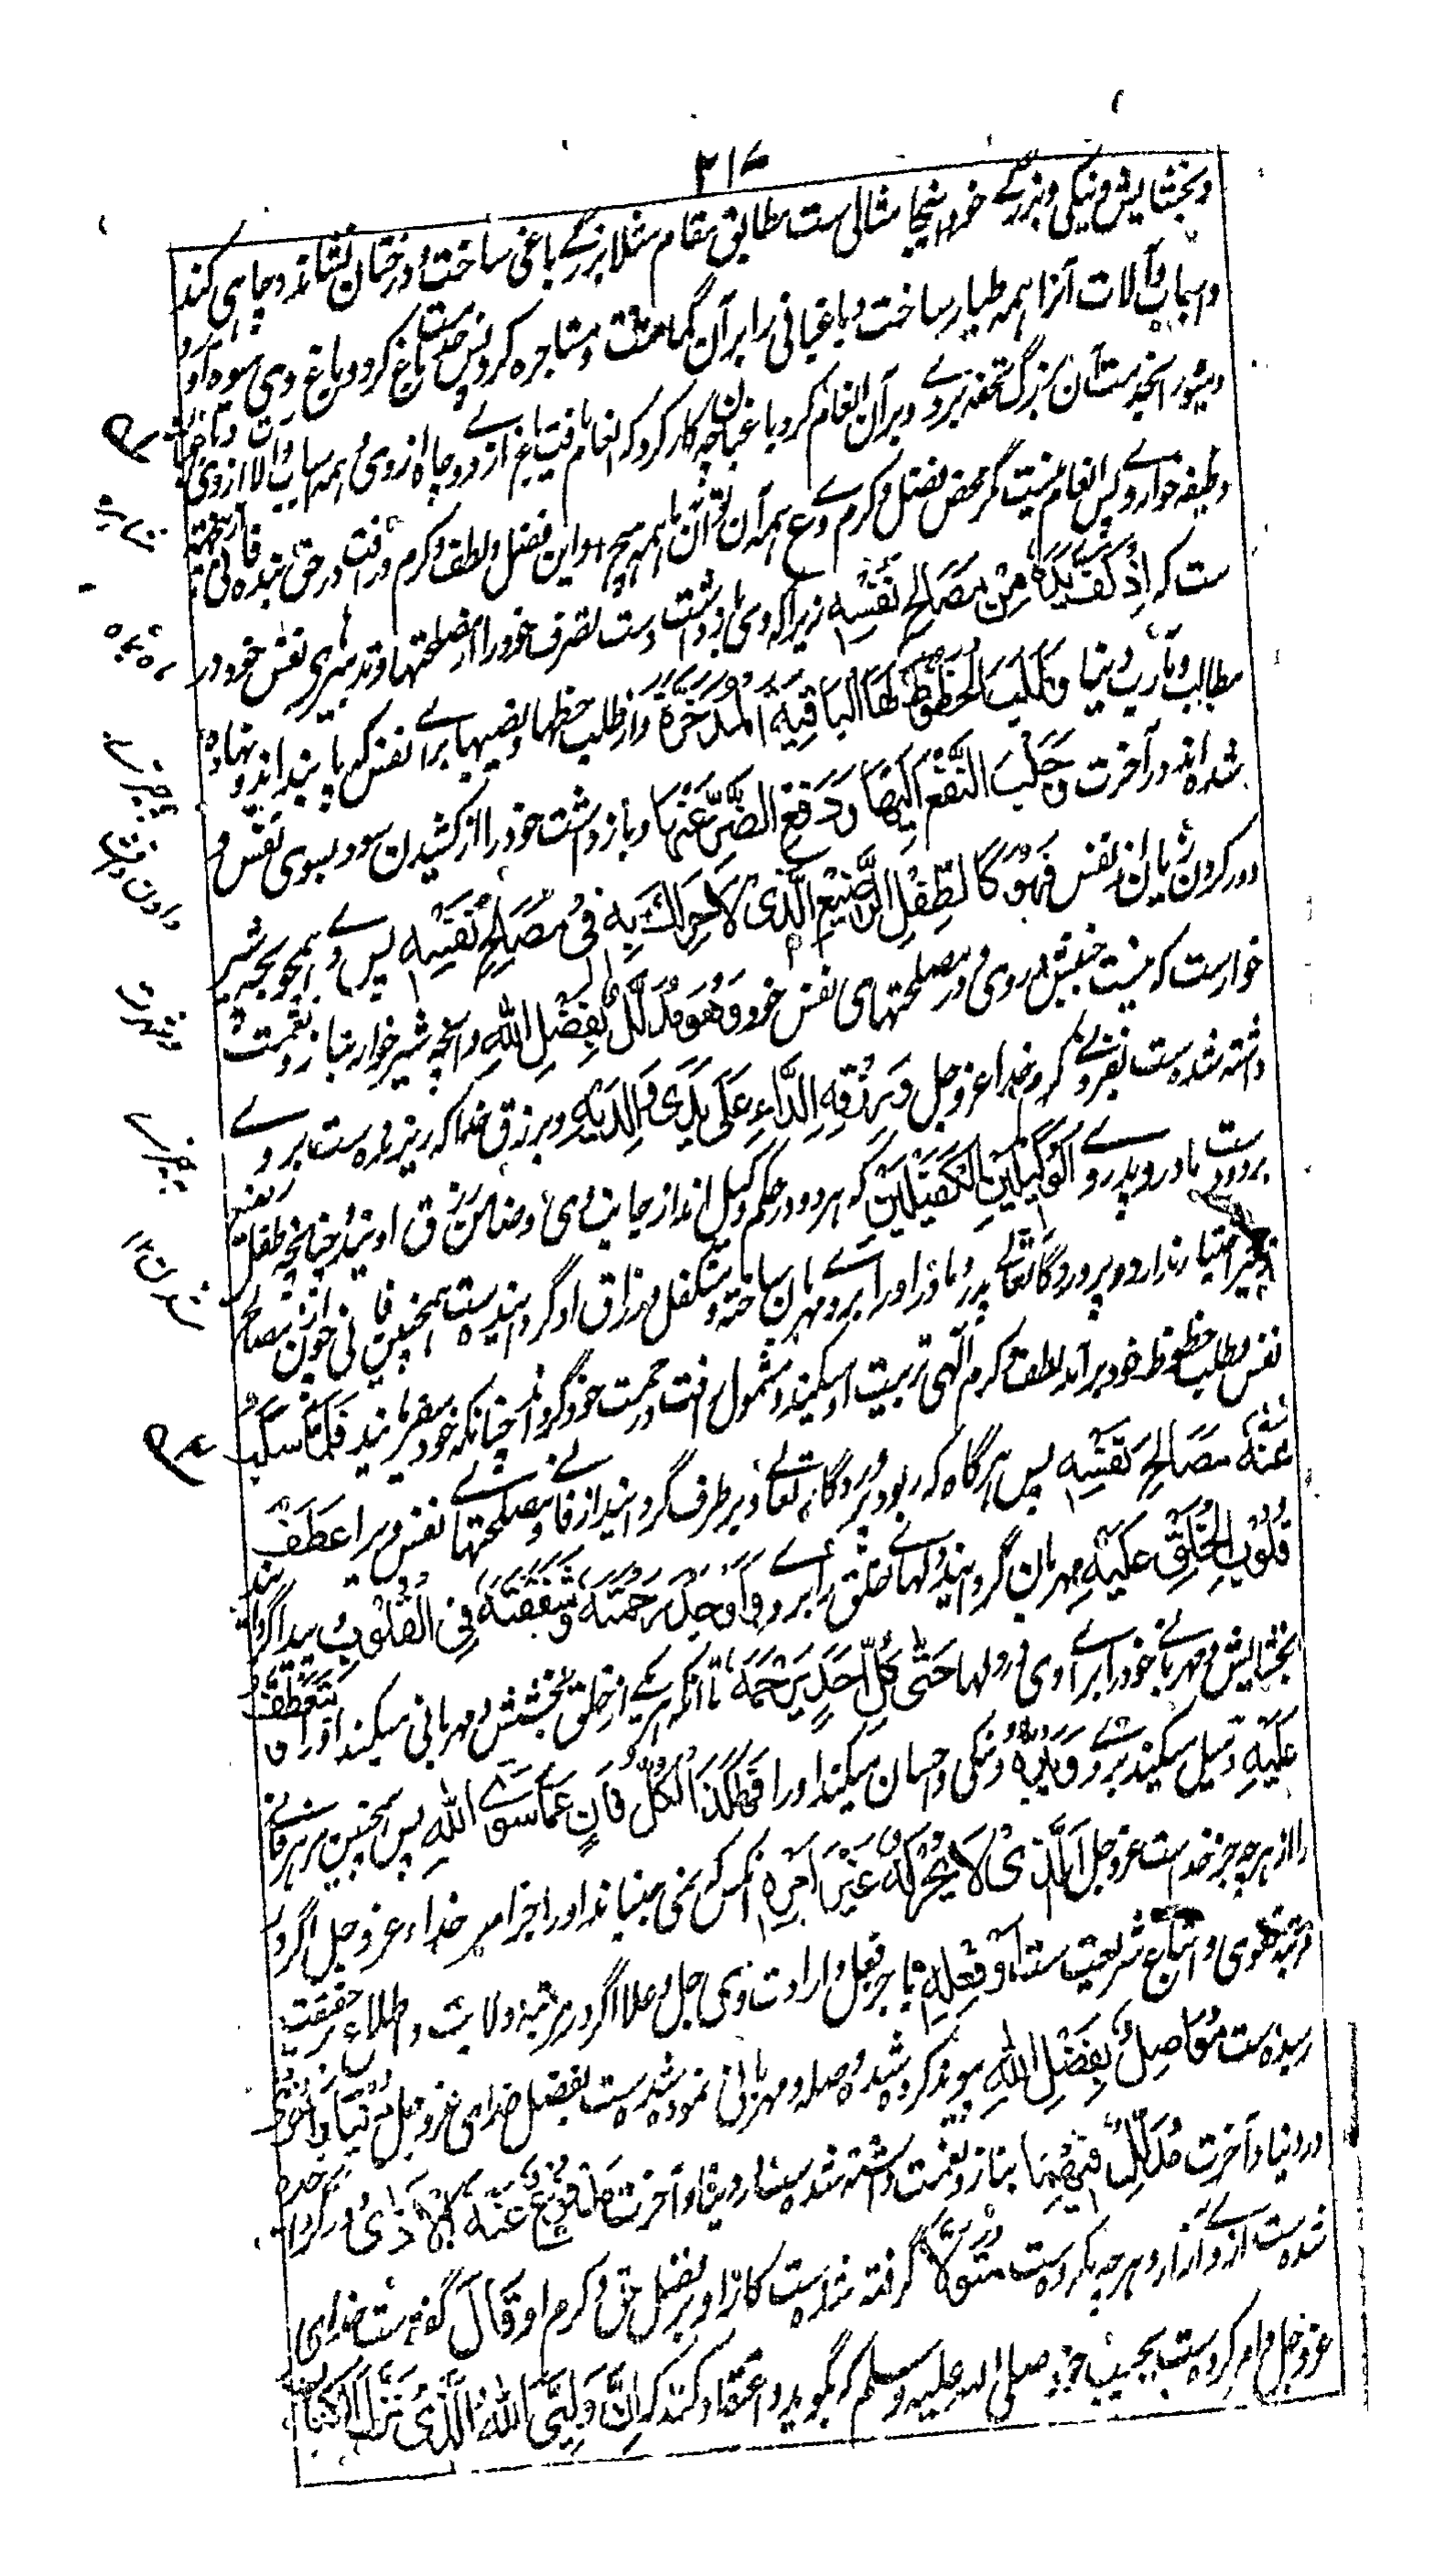 ۲۱۷
و بخشایش و نیکی و بزرگے خود اینجا مثالی ست مطابق مقام مثلا بزرگے باغی ساخت و درختان نشاند و چاہی کند
و اسباب و آلات آنرا ہمہ طیار ساخت و باغبانی را بر آن گماشت و مشاجرہ کرد پس خدمت باغ کرد و باغ وی میوہ آورد
و میوہ را بخدمت آن بزرگ تحفہ برد وے بر آن انعام کرد باغبان چہ کار کرد کہ انعام یافت باغ ازوے و چاہ ازوی و ہمہ اسباب و آلات ازوی
وظیفہ خوار وے پس انعام نیست مگر محض فضل و کرم وے مع ہمہ آن تو آن ما ہمہ ہیچ و این فضل و لطف و کرم و رافت در حق بندہ فانی
ست کہ اِذْ كَفَّ يَدَهُ مِنْ مَصَالِحِ نَفْسِهِ زیرا کہ وی باز داشت دست تصرف خود را از مصلحتها و تدبیرہای نفس خود در
مطالب و مآرب دنیا وَطَلَبِ الْحُظُوظِ لَهَا الْبَاقِيَةِ الْمُدَّخَرَةِ و از طلب حظہا و نصیبہا براے نفس کہ پایندہ اند و نہادہ
شدہ اند در آخرت وَجَلْبِ النَّفْعِ اِلَيْهَا وَدَفْعِ الضَّرِّ عَنْهَا و باز داشت خود را از کشیدن سود بسوی نفس و
دور کردن زیان از نفس فَهُوَ كَالطِّفْلِ الرَّضِيْعِ الَّذِیْ لَا حِرَاكَ بِهِ فِیْ مَصَالِحِ نَفْسِهِ پس وے ہمچو بچہ شیر
خوارست کہ نیست جنبش در وی در مصلحتہای نفس خود وَهُوَ مُدَلَّلٌ بِفَضْلِ اللهِ و آن بچہ شیر خوار بناز و نعمت
داشتہ شدہ ست بفضل و کرم خدا عز و جل وَرِزْقِهِ الدَّارِّ عَلَى يَدَیْ وَالِدَيْهِ و برزق خدا کہ ریزندہ ست بر وے
بر دست مادر و پدر وے الْوَكِيْلَيْنِ الْكَفِيْلَيْنِ کہ ہر دو در حکم وکیل اند از جانب وی و ضامن رزق اویند چنانچہ طفل
تدبیر اختیار ندارد و پروردگار تعالے پدر و مادر را و را برو مہربان ساختہ و متکفل رزق او گردانیدہ ست ہمچنین فانی چون از مصالح
نفس و طلب حظوظ خود برآمد لطف و کرم الٰہی تربیت او میکند و مشمول رافت و رحمت خود گرداند چنانکہ خود میفرمایند فَلَمَّا سَلَبَ
عَنْهُ مَصَالِحَ نَفْسِهِ پس ہرگاہ کہ ربود پروردگار تعالے و برطرف گردانید از فانی مصلحتہاے نفس ویرا عَطَفَ
قُلُوْبَ الْخَلْقِ عَلَيْهِ مہربان گردانید دلہاے خلق را بر وے وَاَوْجَدَ رَحْمَتَهُ وَشَفَقَتَهُ فِی الْقُلُوْبِ و پیدا گرداند
بخشایش و مہربانے خود را براے وی در دلہا حَتّٰى كُلُّ اَحَدٍ يَرْحَمُهُ تا آنکہ ہر یکے از خلق بخشش و مہربانی میکند او را وَيَتَعَطَّفُ
عَلَيْهِ و میل میکند بر وے وَيَبَرُّهُ و نیکی و احسان میکند او را فَهٰكَذَا كُلُّ فَانٍ عَمَّا سِوَى اللهِ پس ہمچنین ہر فانے
را از ہر چہ جز خداست عز و جل اَلَّذِیْ لَا يُحَرِّكُهُ غَيْرُ اَمْرِهِ آنکس کہ نمی جنباند او را جز امر خداے عز و جل اگر در
مرتبہ تقوی و اتباع شریعت ست اَوْ فِعْلِهِ یا جز فعل و ارادت وی جل و علا اگر در مرتبہ ولایت و اطلاع حقیقت
رسیدہ ست مُوَاصَلٌ بِفَضْلِ اللهِ پیوند کردہ شدہ و صلہ و مہربانی نمودہ شدہ ست بفضل خدای عز و جل دُنْيَا وَاُخْرٰى
در دنیا و آخرت مُدَلَّلٌ فِيْهِمَا بناز و نعمت داشتہ شدہ ست در دنیا و آخرت مَدْفُوْعٌ عَنْهُ الْاَذٰى دور کردہ
شدہ ست از وے آزار و ہرچہ مکروہ ست مُتَوَلًّى گرفتہ شدہ ست کار او بفضل حق و کرم او قَالَ گفتہ ست خدای
عز و جل و امر کردہ ست بحبیب خود صلی اللہ علیہ وسلم کہ بگوید و اعتقاد کند کہ اِنَّ وَلِيِّیَ اللهُ الَّذِیْ نَزَّلَ الْكِتَابَ